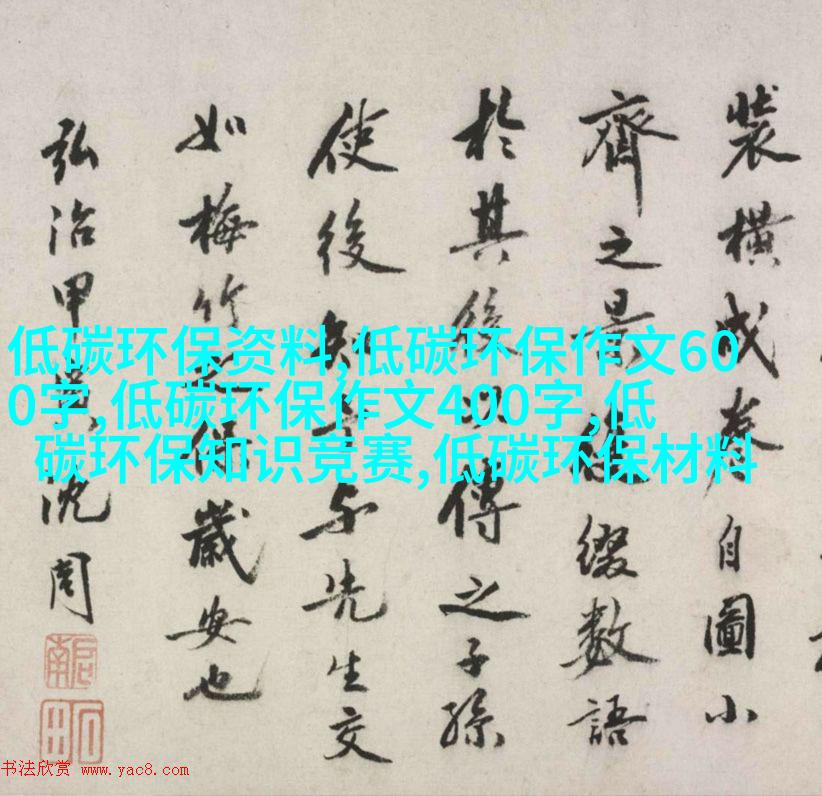 低碳环保资料,低碳环保作文60
0字,低碳环保作文400字,低
碳环保知识竞赛,低碳环保材料
裝橫成卷自圖小
齊之景復綴數語
於其後以傳之子孫
使後知吾与先生交
如梅竹保歲安也
弘治甲寅沈周
啟南
石田
书法欣赏 www.yac8.com